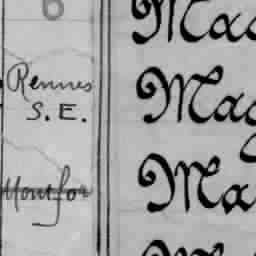 6
Mag
Rennes
S. E.
Mag
Montfor
Ma